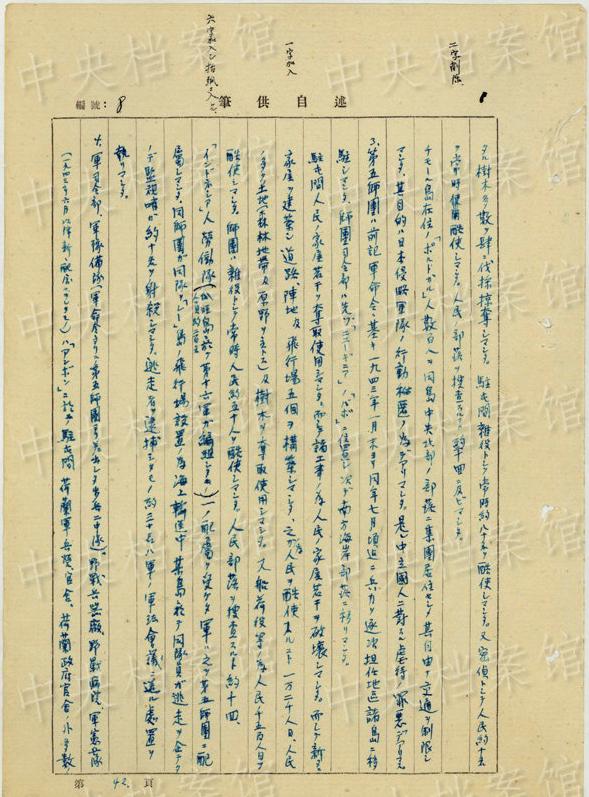 二字削除
一字加入
六字加入シ
編號：8
述自供筆
タル樹木多数ヲ肆ニ伐採掠奪シマシタ。駐屯間雑役トシテ常時約八十名ヲ酷使シマシタ。又密偵トシテ人民約十五
ヲ常時使用酷使シマシタ。人民ノ部落ヲ捜査スルコト約十四ニ及ビマシタ。
チモール島在住ノ「ポルトガル」人数百人ヲ同島中央北部ノ部落ニ集團居住セシメ其自由ナ交通ヲ制限シ
マシタ。其目的ハ日本侵略軍隊ノ行動秘匿ノ為デアリマシタ。是レ中立國人ニ對スル虐待ノ罪悪デアリマス。
3、第五師團ハ前記軍命令ニ基キ一九四三年一月末ヨリ同年七月頃迄ニ兵力ヲ逐次担任地区諸島ニ移
駐シマシタ。師團司令部ハ先ヅ「ニューギニア」ノ「バボ」ニ位置シ次デ南方海岸部落ニ移リマシタ。
駐屯間人民ノ家屋若干ヲ奪取使用シマシタ。而シテ諸工事ノ為人民ノ家屋若干ヲ破壊シマシタ。而シテ新ニ
家屋ヲ建築シ道路、陣地及飛行場五個ヲ構築シマシタ。之ガ為人民ヲ酷使スルコト一万二千人日、人民
ノ多クノ土地（森林地帯及原野ヲ主トス）及樹木ヲ奪取使用シマシタ。又船荷役等ノ為人民千五百人日ヲ
酷使シマシタ。師團ハ雑役トシテ常時人民約五十人ヲ酷使シマシタ。人民部落ヲ捜査スルコト約十四、
「インドネシア」人労働隊（瓜哇島ニ於テ第十六軍ガ編組シタモノ）一ノ配属ヲ受ケタ軍ハ之ヲ第五師團ニ配
人員約二百五十
属シマシタ。同師團ガ同隊ヲ「　」島ノ飛行場設置ノ為海上輸送中某島ニ於テ同隊員ガ逃走ヲ企テタ
ノデ監視哨ガ約十名ヲ射殺シマシタ。逃走者ヲ逮捕シタモノ約二十名ハ軍ノ軍法會議ニ送リ處置ヲ
執リマシタ。
4、軍司令部、軍豫備隊（軍命令ニヨリ第五師團ヨリ差出シタ歩兵二中隊）、野戦兵器廠、野戦病院、軍憲兵隊
（一九四三年六月以降新ニ配屬セラレマシタ）ハ「アンボン」ニ於テ駐屯間荷蘭軍兵營、官舎、荷蘭政府官舎ノ外多数
第42頁
中央档案馆